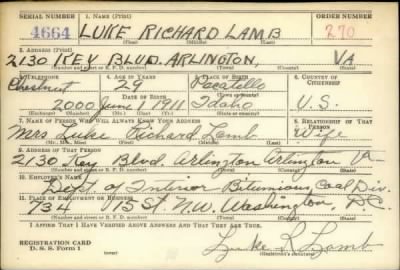 SERIAL NUMBER 1. NAME (Print) ORDER NUMBER
4664 LUKE RICHARD LAMB 270
(First) (Middle) (Last)
2. ADDRESS (Print)
2130 KEY BLVD. ARLINGTON, VA
(Number and street or R. F. D. number) (Town) (County) (State)
3. TELEPHONE 4. AGE IN YEARS 5. PLACE OF BIRTH 6. COUNTRY OF CITIZENSHIP
Chestnut 29 Pocatello
DATE OF BIRTH (Town or county)
2000 June 1 1911 Idaho U.S.
(Exchange) (Number) (Mo.) (Day) (Yr.) (State or country)
7. NAME OF PERSON WHO WILL ALWAYS KNOW YOUR ADDRESS 8. RELATIONSHIP OF THAT PERSON
Mrs Luke Richard Lamb Wife
(Mr., Mrs., Miss) (First) (Middle) (Last)
9. ADDRESS OF THAT PERSON
2130 Key Blvd. Arlington Arlington Va
(Number and street or R. F. D. number) (Town) (County) (State)
10. EMPLOYER'S NAME
Dept. of Interior Bitumious Coal Div.
11. PLACE OF EMPLOYMENT OR BUSINESS
734 15 St. N.W. Washington, D.C.
(Number and street or R. F. D. number) (Town) (County) (State)
I AFFIRM THAT I HAVE VERIFIED ABOVE ANSWERS AND THAT THEY ARE TRUE.
REGISTRATION CARD
D. S. S. Form 1
Luke R. Lamb
(Registrant's signature)